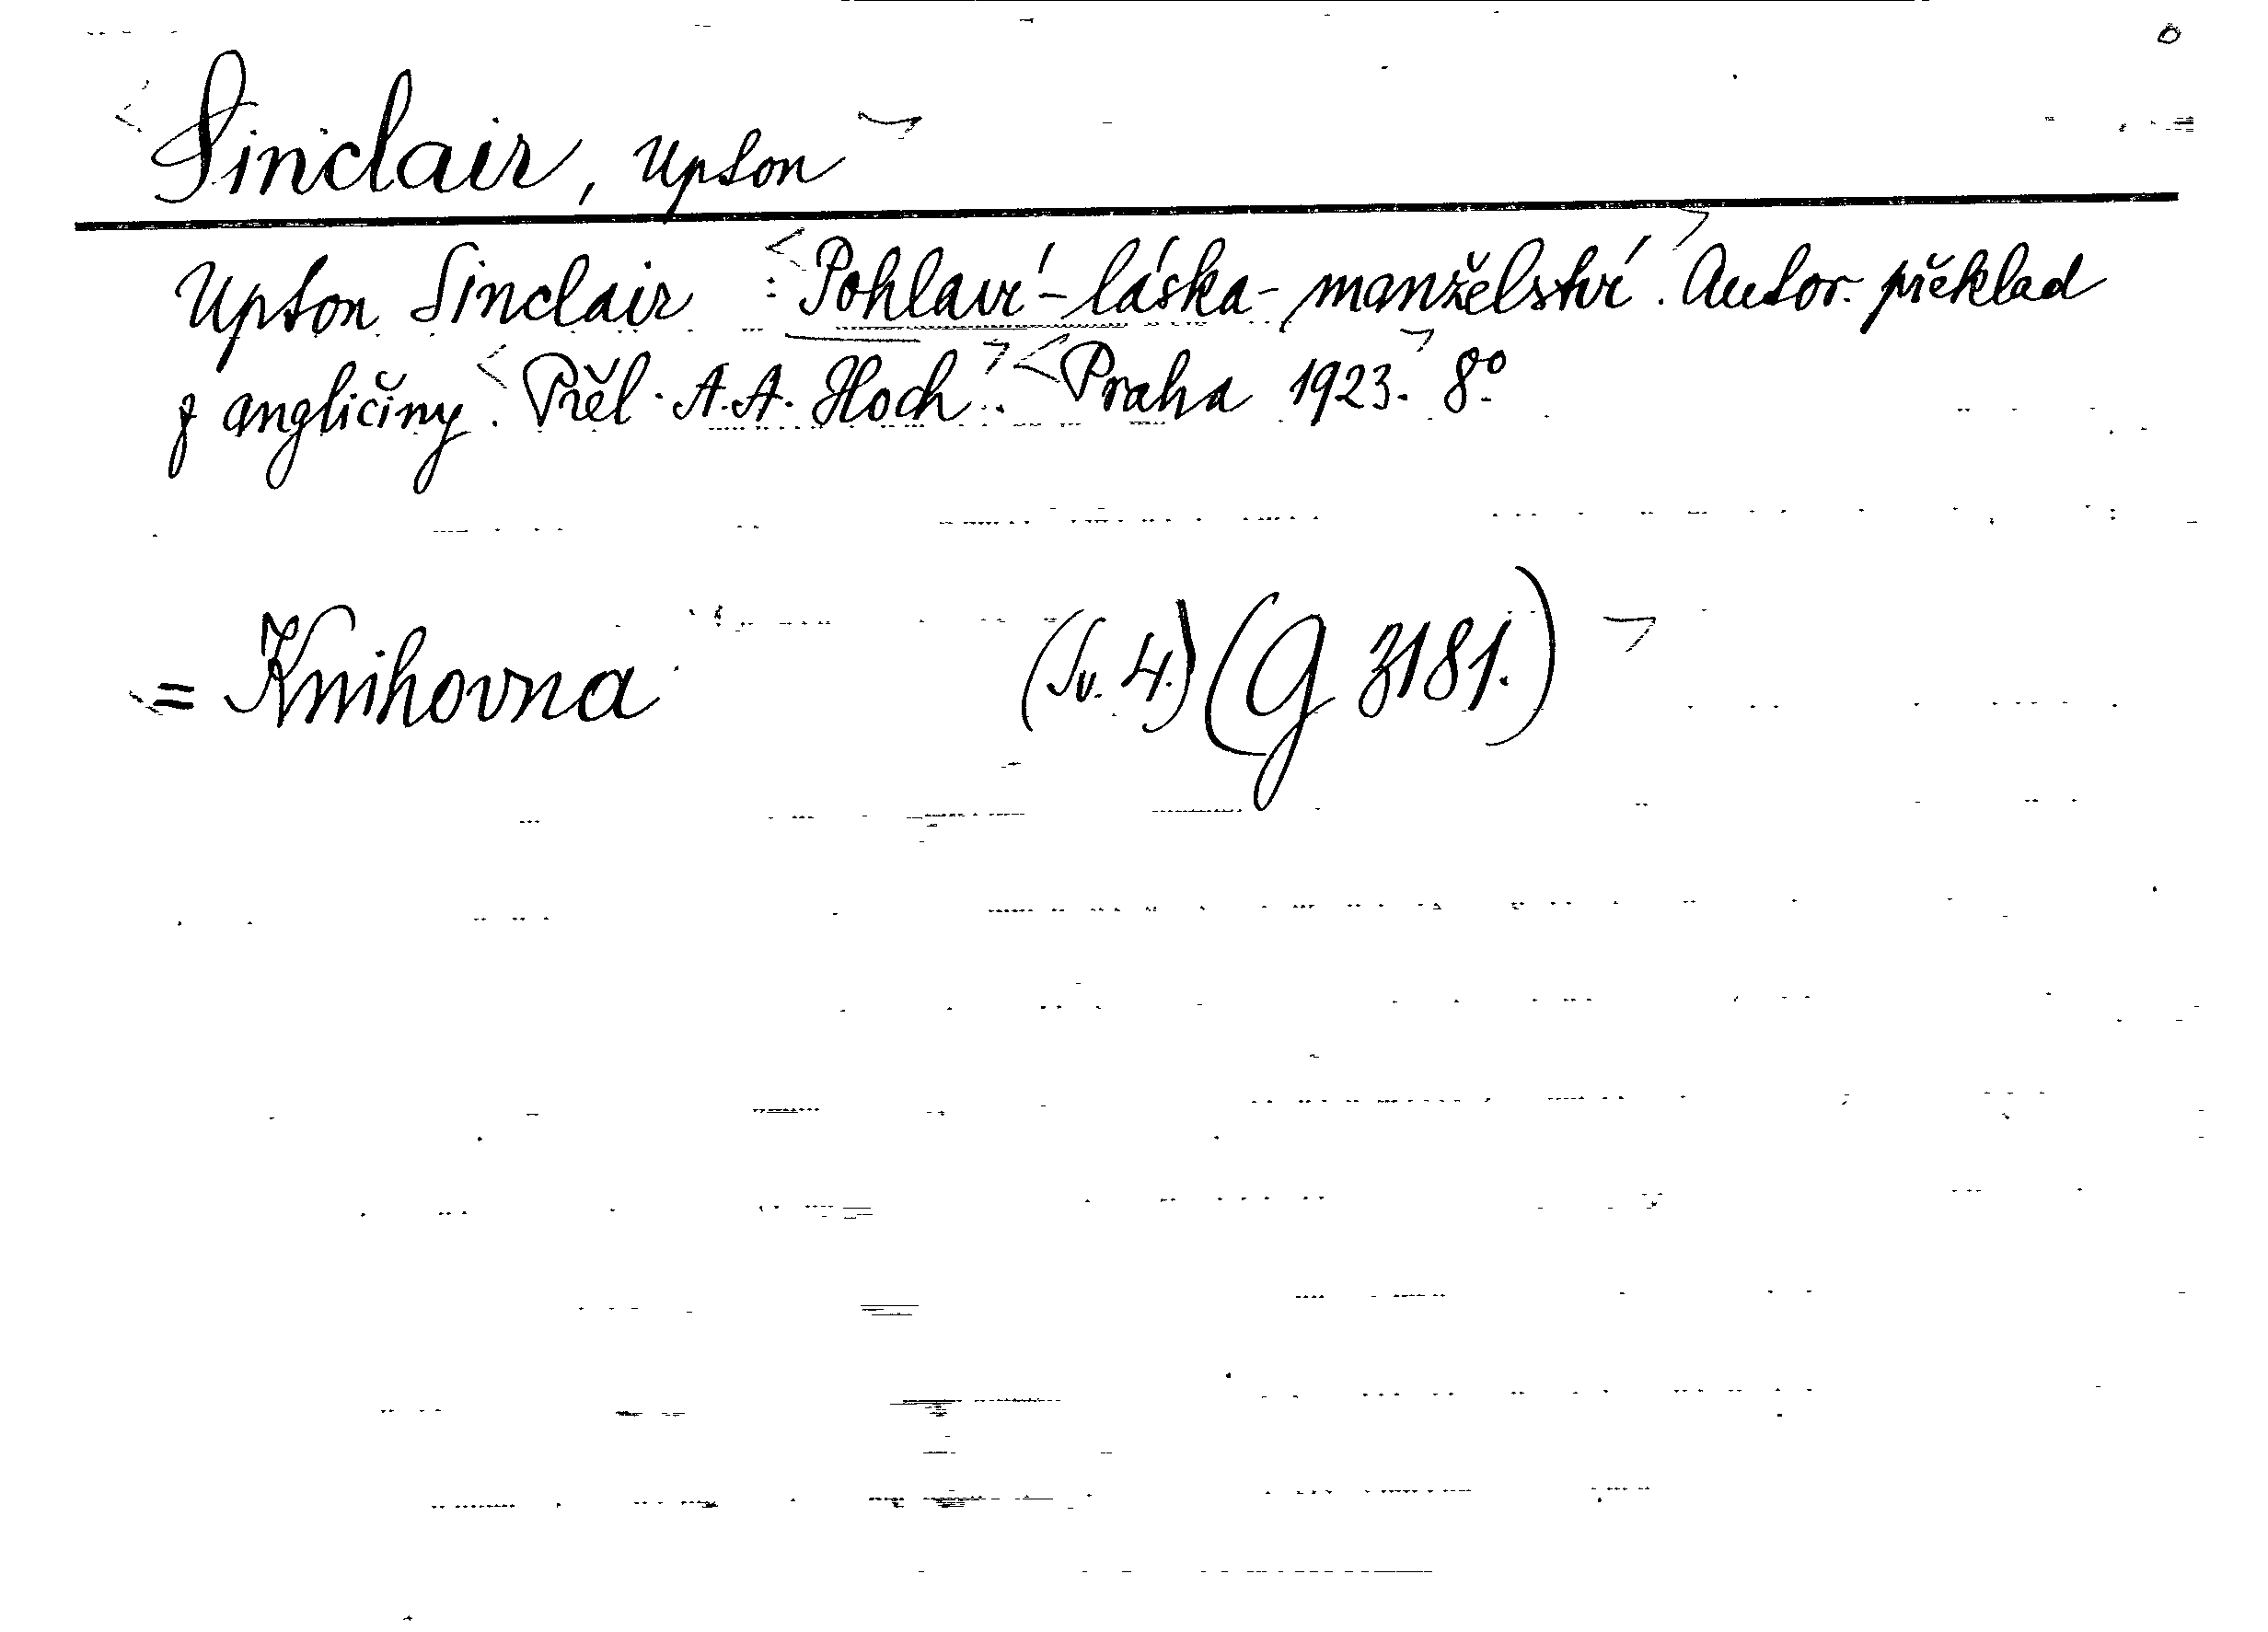 Sinclair, Upton
Upton Sinclair : Pohlaví - láska - manželství. Autor. překlad
z angličiny. Přel. A. A. Hoch. Praha 1923. 8º
= Knihovna (Sv. 4.) (G 3181.)